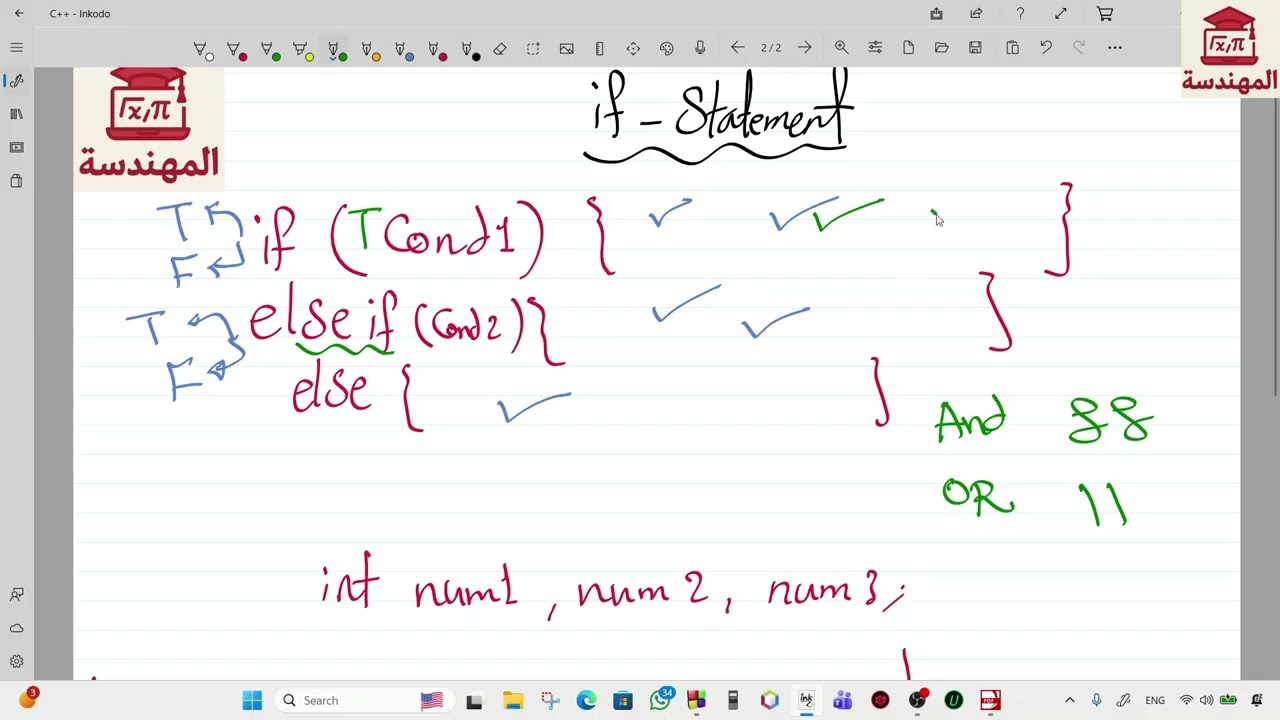 C++ - Inkodo
2/2
√x,π
المهندسة
√x,π
المهندسة
if - Statement
T
F
if (T Cond1) { }
T
F
else if (Cond2) { }
else { }
And &&
OR ||
int num1, num2, num3;
3
Search
34
ink
ENG